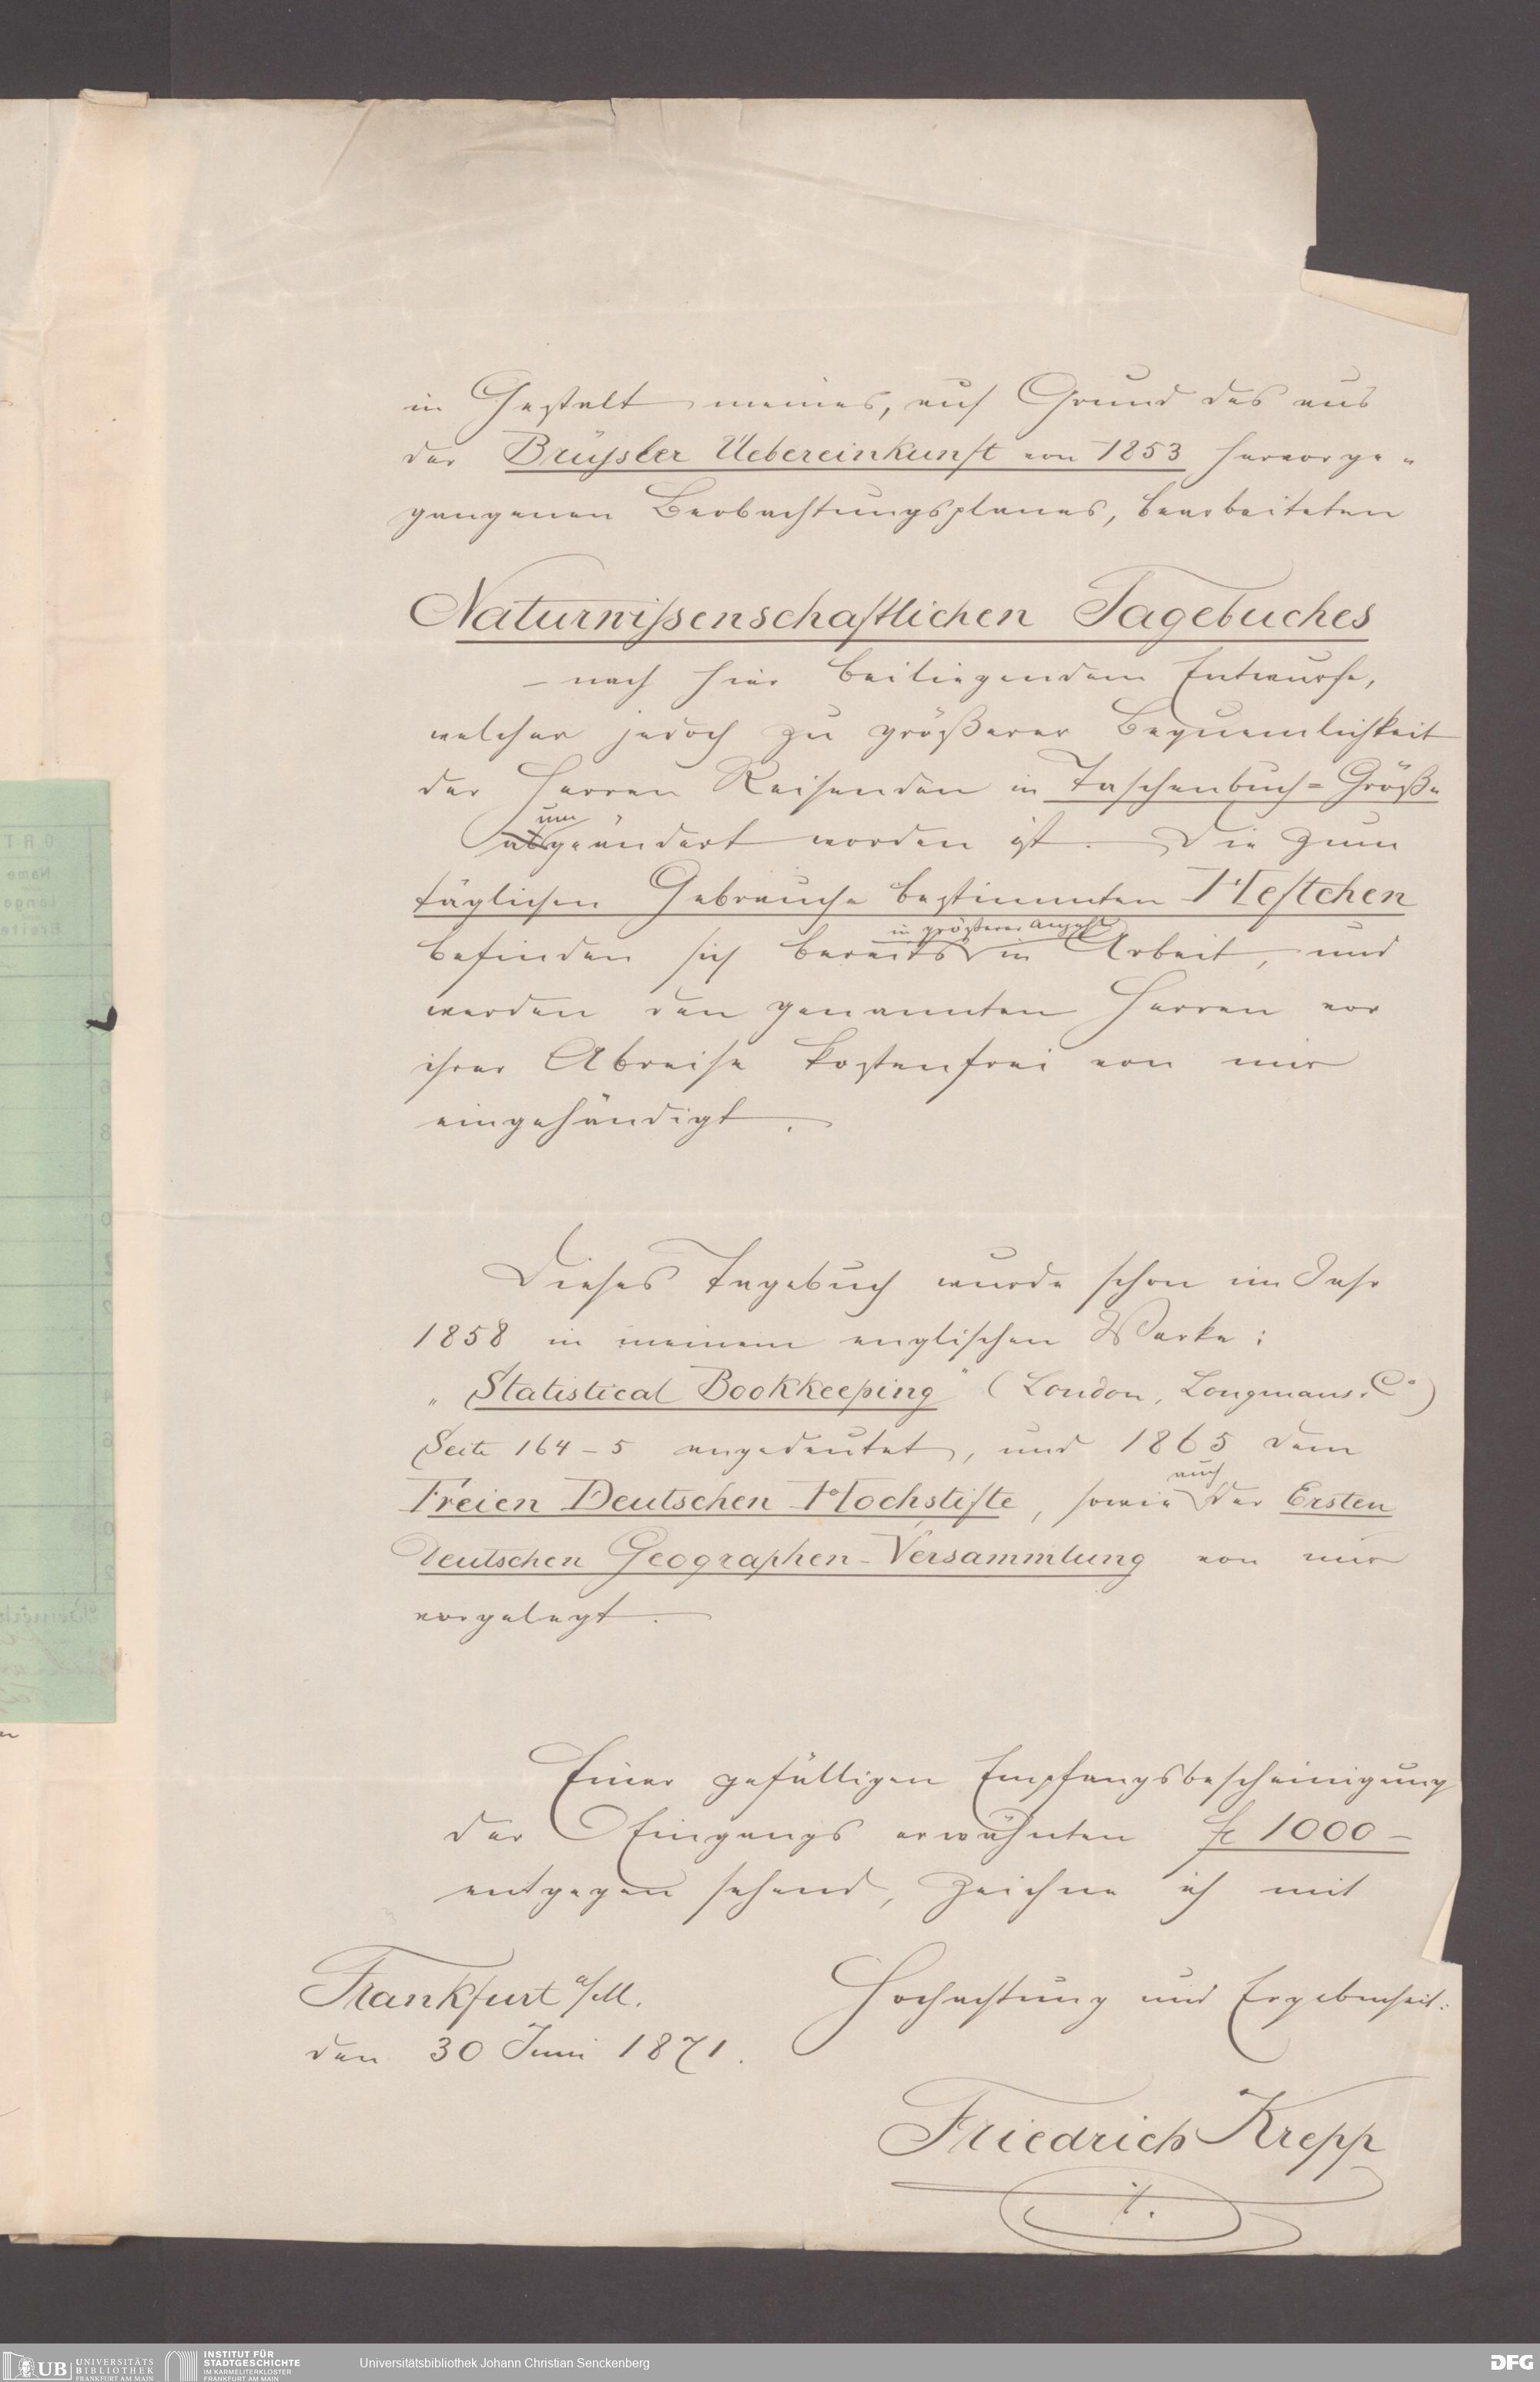 in Gestalt meines, auf Grund des aus
der Brüßler Uebereinkunft von 1853 hervorge-
gangenen Beobachtungsplanes, bearbeiteten
Naturwißenschaftlichen Tagebuches
– nach hier beiliegendem Entwurfe,
welcher jedoch zu größerer Bequemlichkeit
der Herren Reisenden in Taschenbuch-Größe
um
abgeändert worden ist. Die zum
täglichen Gebrauche bestimmten Heftchen
in größerer Anzahl
befinden sich bereits in Arbeit, und
werden den genannten Herren vor
ihrer Abreise kostenfrei von mir
eingehändigt.
Dieses Tagebuch wurde schon im Jahr
1858 in meinem englischen Werke:
„Statistical Bookkeeping" (London, Longmans. Co)
Seite 164–5 angedeutet, und 1865 dem
auch
Freien Deutschen Hochstifte, sowie der Ersten
Deutschen Geographen-Versammlung von mir
vorgelegt.
Einer gefälligen Empfangsbescheinigung
der Eingangs erwähnten 1000 –
entgegen sehend, zeichne ich mit
Frankfurt a/M. Hochachtung und Ergebenheit:
den 30 Juni 1871.
Friedrich Krepp
ORT
Name
Länge
Breite
UB UNIVERSITÄTS BIBLIOTHEK FRANKFURT AM MAIN
INSTITUT FÜR STADTGESCHICHTE IM KARMELITERKLOSTER FRANKFURT AM MAIN
Universitätsbibliothek Johann Christian Senckenberg
DFG